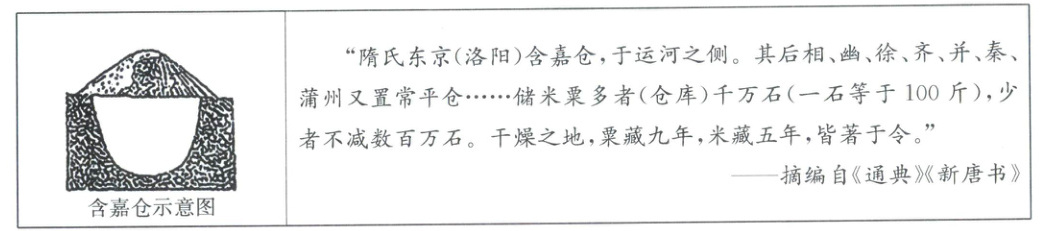 含嘉仓示意图
“隋氏东京(洛阳)含嘉仓,于运河之侧。其后相、幽、徐、齐、并、秦、
蒲州又置常平仓……储米粟多者(仓库)千万石(一石等于 100 斤),少
者不减数百万石。干燥之地,粟藏九年,米藏五年,皆著于令。”
——摘编自《通典》《新唐书》